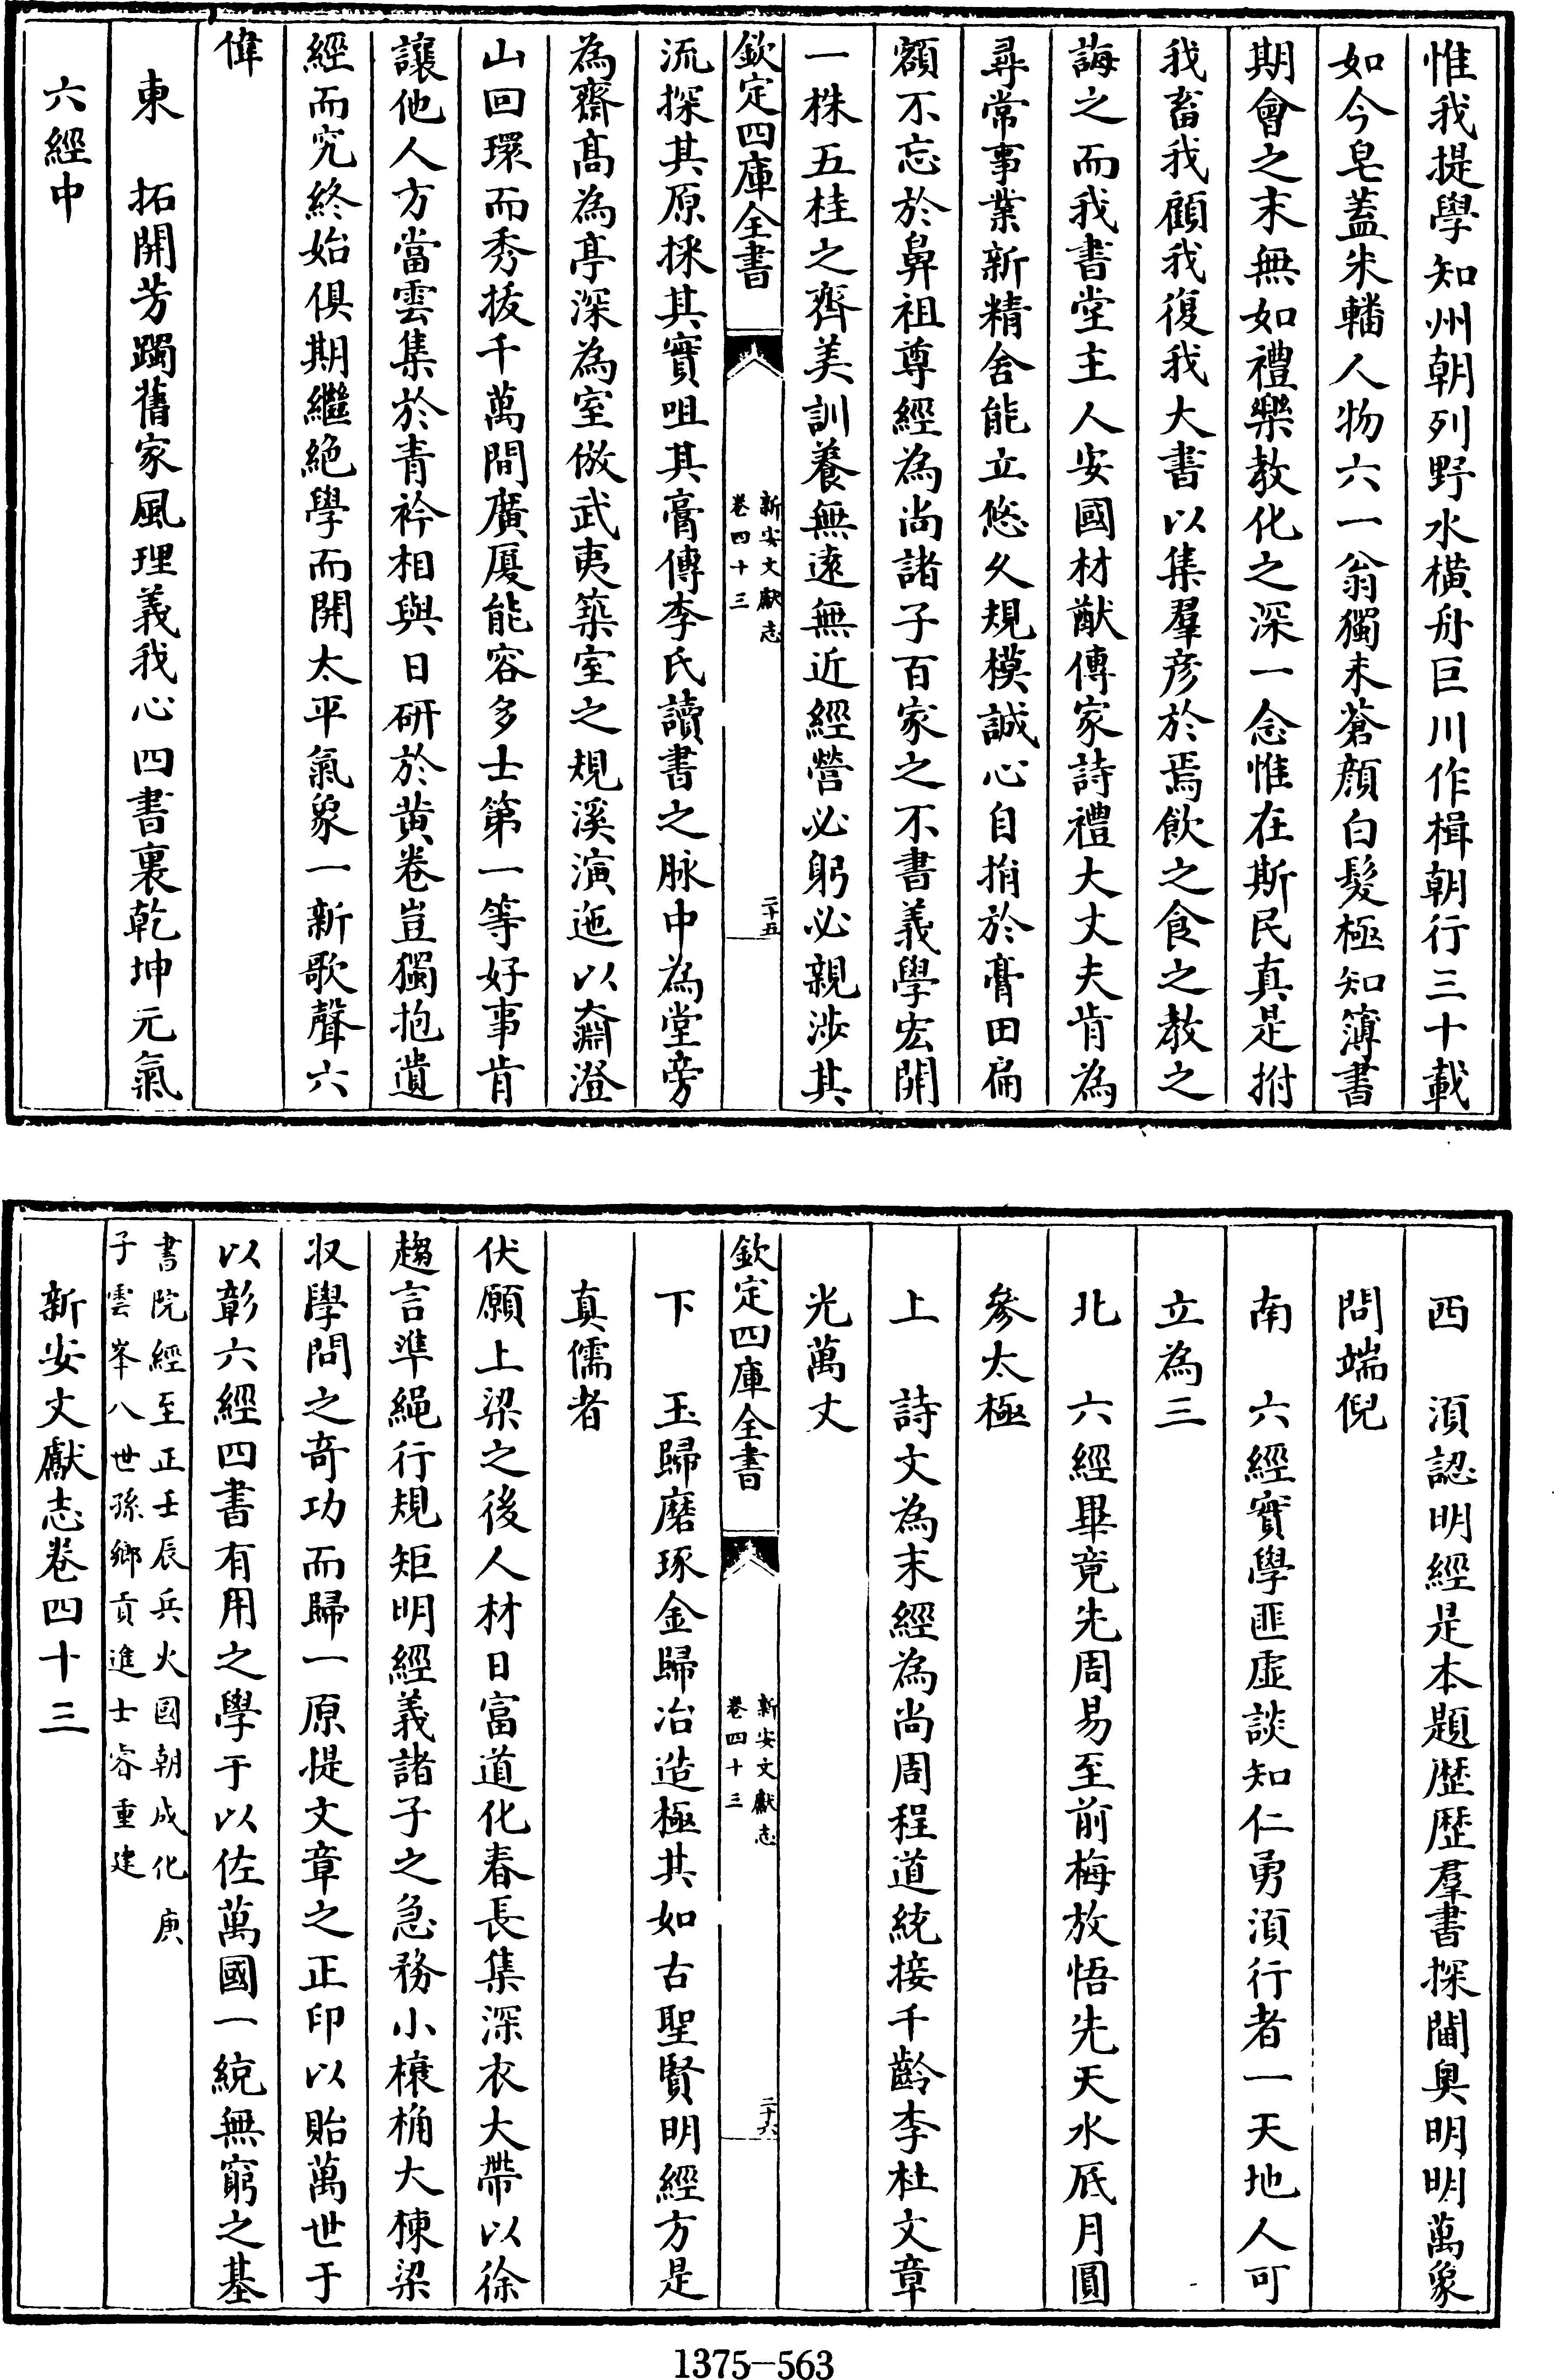 惟我提學知州朝列野水橫舟巨川作楫朝行三十載
如今皂蓋朱轓人物六一翁獨未蒼顔白髮極知簿書
期會之末無如禮樂教化之深一念惟在斯民真是拊
我畜我顧我復我大書以集羣彦於焉飲之食之教之
誨之而我書堂主人安國材猷傳家詩禮大丈夫肯為
尋常事業新精舍能立悠久規模誠心自捐於膏田扁
額不忘於鼻祖尊經為尚諸子百家之不書義學宏開
一株五桂之齊美訓養無遠無近經營必躬必親涉其
欽定四庫全書
新安文獻志
卷四十三
二十五
流探其原採其實咀其膏傳李氏讀書之脉中為堂旁
為齋髙為亭深為室倣武夷築室之規溪演迤以奫澄
山回環而秀拔千萬間廣厦能容多士第一等好事肯
讓他人方當雲集於青衿相與日研於黄卷豈獨抱遺
經而究終始俱期繼絶學而開太平氣象一新歌聲六
偉
東　拓開芳躅舊家風理義我心四書裏乾坤元氣
六經中
西　湏認明經是本題歴歴羣書探閫奥明明萬象
問端倪
南　六經實學匪虚談知仁勇湏行者一天地人可
立為三
北　六經畢竟先周易至前梅放悟先天水厎月圓
參太極
上　詩文為末經為尚周程道統接千齡李杜文章
光萬丈
欽定四庫全書
新安文獻志
卷四十三
二十六
下　玉歸磨琢金歸冶造極其如古聖賢明經方是
真儒者
伏願上梁之後人材日富道化春長集深衣大帶以徐
趨言準繩行規矩明經義諸子之急務小榱桷大棟梁
収學問之奇功而歸一原提文章之正印以貽萬世于
以彰六經四書有用之學于以佐萬國一統無窮之基
書院經至正壬辰兵火國朝成化庚
子雲峯八世孫鄉貢進士睿重建
新安文獻志卷四十三
1375—563